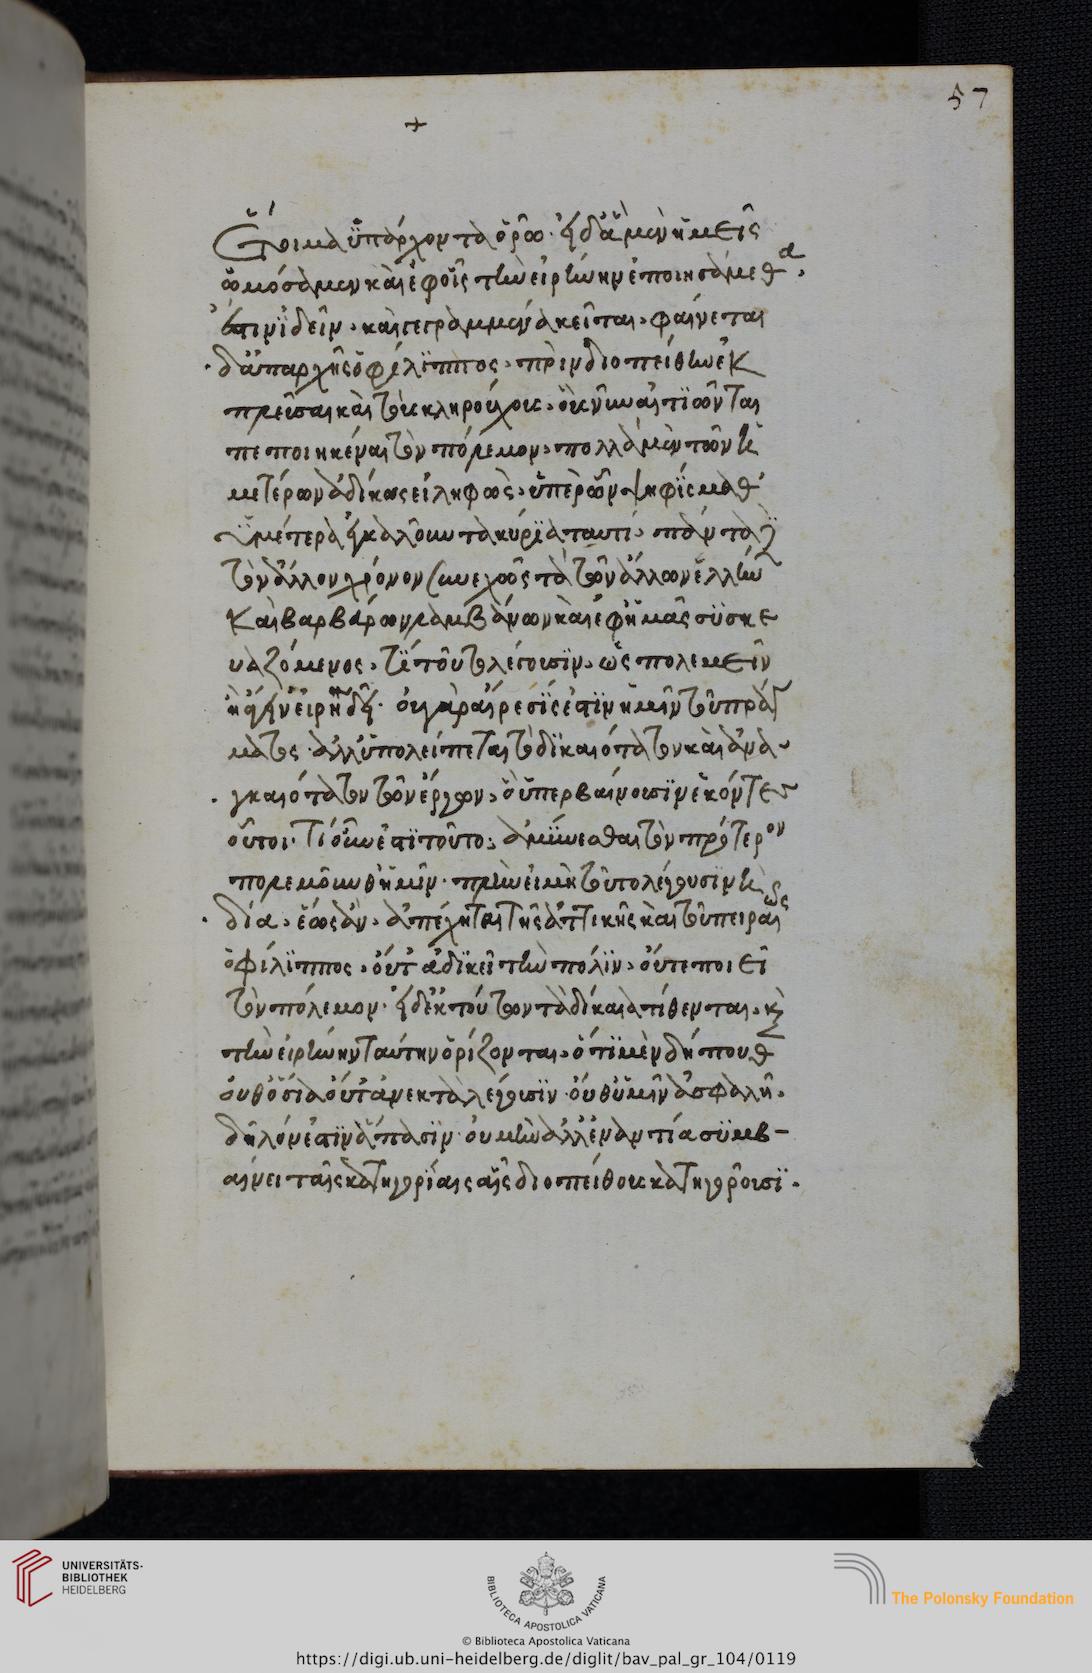 57
+
ἕτοιμα ὑπάρχοντα ὁρῶ· εἰ δ' ἃ μὲν ἡμεῖς
ὠμόσαμεν καὶ ἐφ' οἷς τὴν εἰρήνην ἐποιησάμεθα,
ἔστιν ἰδεῖν, καὶ γεγραμμένα κεῖται, φαίνεται
δ' ἀπ' ἀρχῆς ὁ φίλιππος, πρὶν διοπείθην ἐκ
πλεῦσαι καὶ τοὺς κληρούχους, οὓς νῦν αἰτιῶνται
πεποιηκέναι τὸν πόλεμον, πολλὰ μὲν τῶν ἡ
μετέρων ἀδίκως εἰληφὼς, ὑπὲρ ὧν ψηφίσμαθ'
ὑμέτερα ἐγκαλοῦντα κύρια ταυτί, πάντα δὲ
τὸν ἄλλον χρόνον συνεχῶς τὰ τῶν ἄλλων ἑλλήνων
καὶ βαρβάρων λαμβάνων καὶ ἐφ' ἡμᾶς συσκε
υαζόμενος, τί τοῦτο λέγουσιν, ὡς πολεμεῖν
ἢ ἄγειν εἰρήνην δεῖ· οὐ γὰρ αἵρεσίς ἐστιν ἡμῖν τοῦ πράγ
ματος ἀλλ' ὑπολείπεται τὸ δικαιότατον καὶ ἀνα-
γκαιότατον τῶν ἔργων, ὃ ὑπερβαίνουσιν ἑκόντες
οὗτοι· τί οὖν ἐστι τοῦτο; ἀμύνεσθαι τὸν πρότερον
πολεμοῦνθ' ἡμῖν· πλὴν εἰ μὴ τοῦτο λέγουσι νὴ
δία, ἕως ἂν, ἀπέχηται τῆς ἀττικῆς καὶ τοῦ πειραιῶς
ὁ φίλιππος, οὔτ' ἀδικεῖ τὴν πόλιν, οὔτε ποιεῖ
τὸν πόλεμον· εἰ δ' ἐκ τούτων τὰ δίκαια τίθενται, καὶ
τὴν εἰρήνην ταύτην ὁρίζονται, ὅτι μὲν δήπουθ
οὔθ' ὅσια οὔτ' ἀνεκτὰ λέγουσιν οὔθ' ὑμῖν ἀσφαλῆ,
δῆλόν ἐστιν ἅπασιν· οὐ μὴν ἀλλ' ἐναντία συμβ-
αίνει ταῖς κατηγορίαις αἷς διοπείθους κατηγοροῦσι.
UNIVERSITÄTS-
BIBLIOTHEK
HEIDELBERG
BIBLIOTECA APOSTOLICA VATICANA
The Polonsky Foundation
© Biblioteca Apostolica Vaticana
https://digi.ub.uni-heidelberg.de/diglit/bav_pal_gr_104/0119